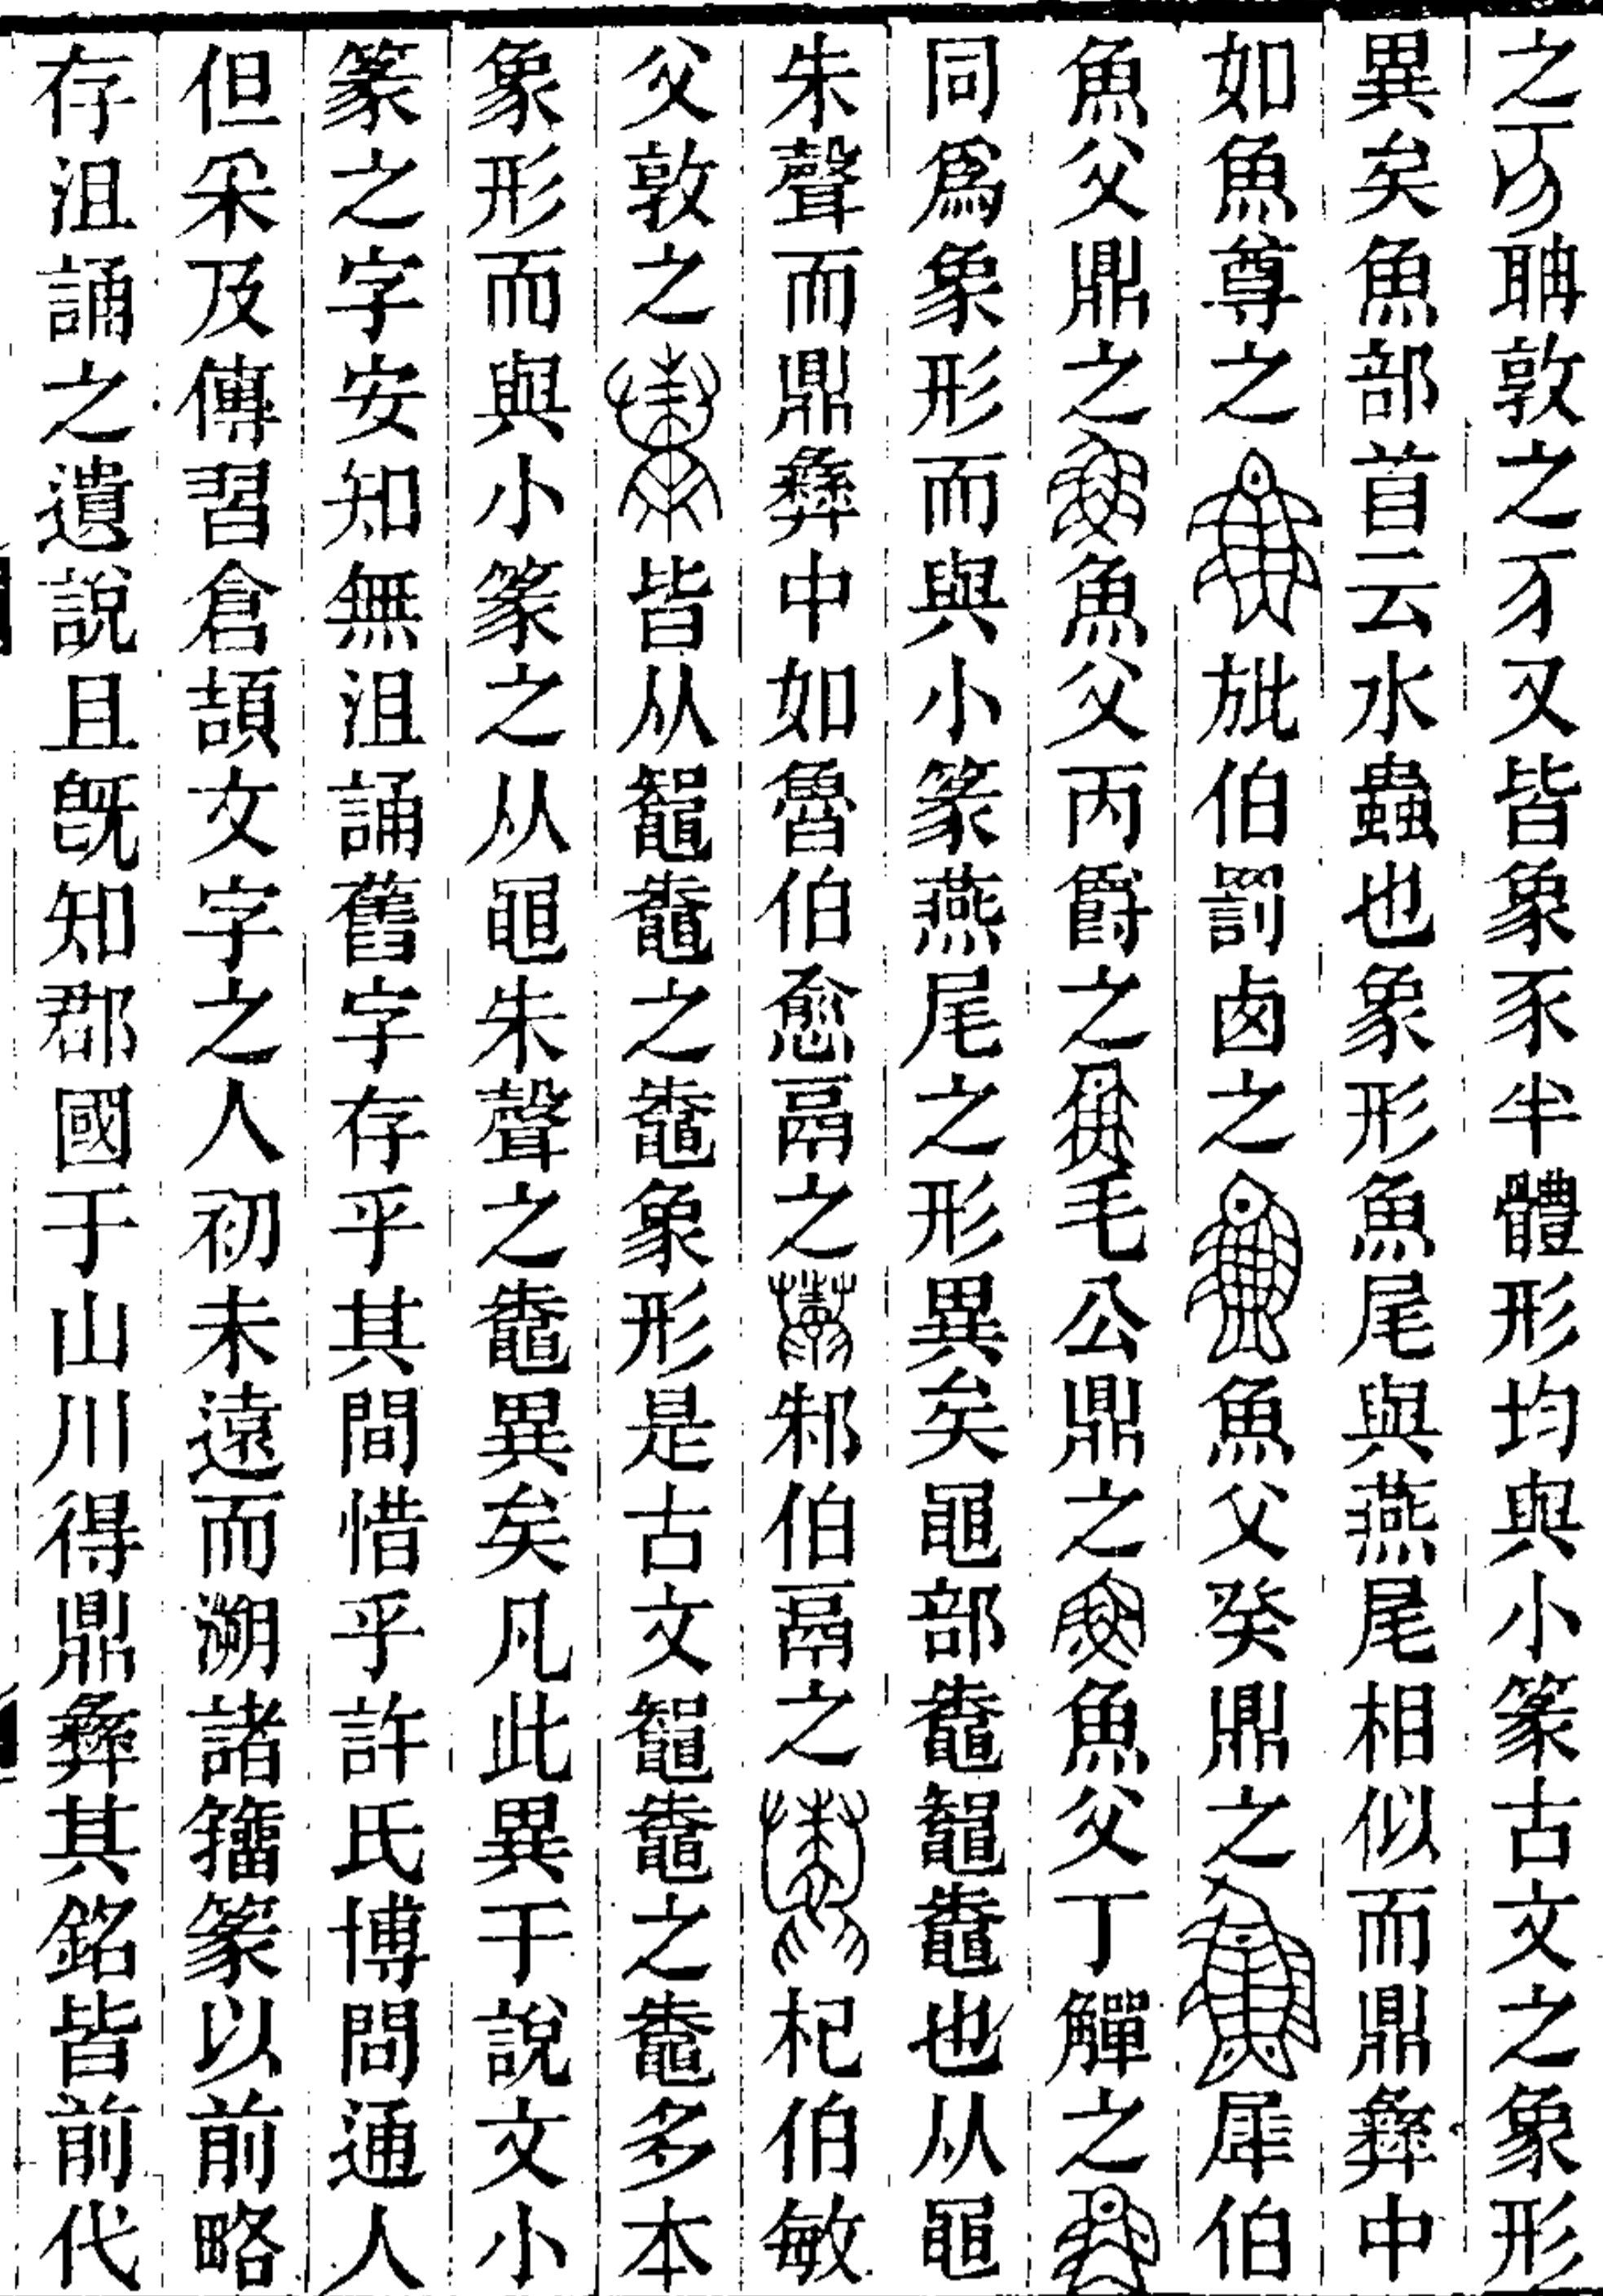 之聃敦之又皆象豕半體形均與小篆古文之象形
異矣魚部首云水蟲也象形魚尾與燕尾相似而鼎彝中
如魚尊之旅伯罰卣之魚父癸鼎之犀伯
魚父鼎之魚父丙爵之毛公鼎之魚父丁觶之
同爲象形而與小篆燕尾之形異矣黽部鼄鼅鼄也从黽
朱聲而鼎彝中如魯伯愈鬲之邾伯鬲之杞伯敏
父敦之皆从鼅鼄之鼄象形是古文鼅鼄之鼄多本
象形而與小篆之从黽朱聲之鼄異矣凡此異于說文小
篆之字安知無沮誦舊字存乎其間惜乎許氏博問通人
但采及傳習倉頡文字之人初未遠而溯諸籀篆以前略
存沮誦之遺說且既知郡國于山川得鼎彝其銘皆前代